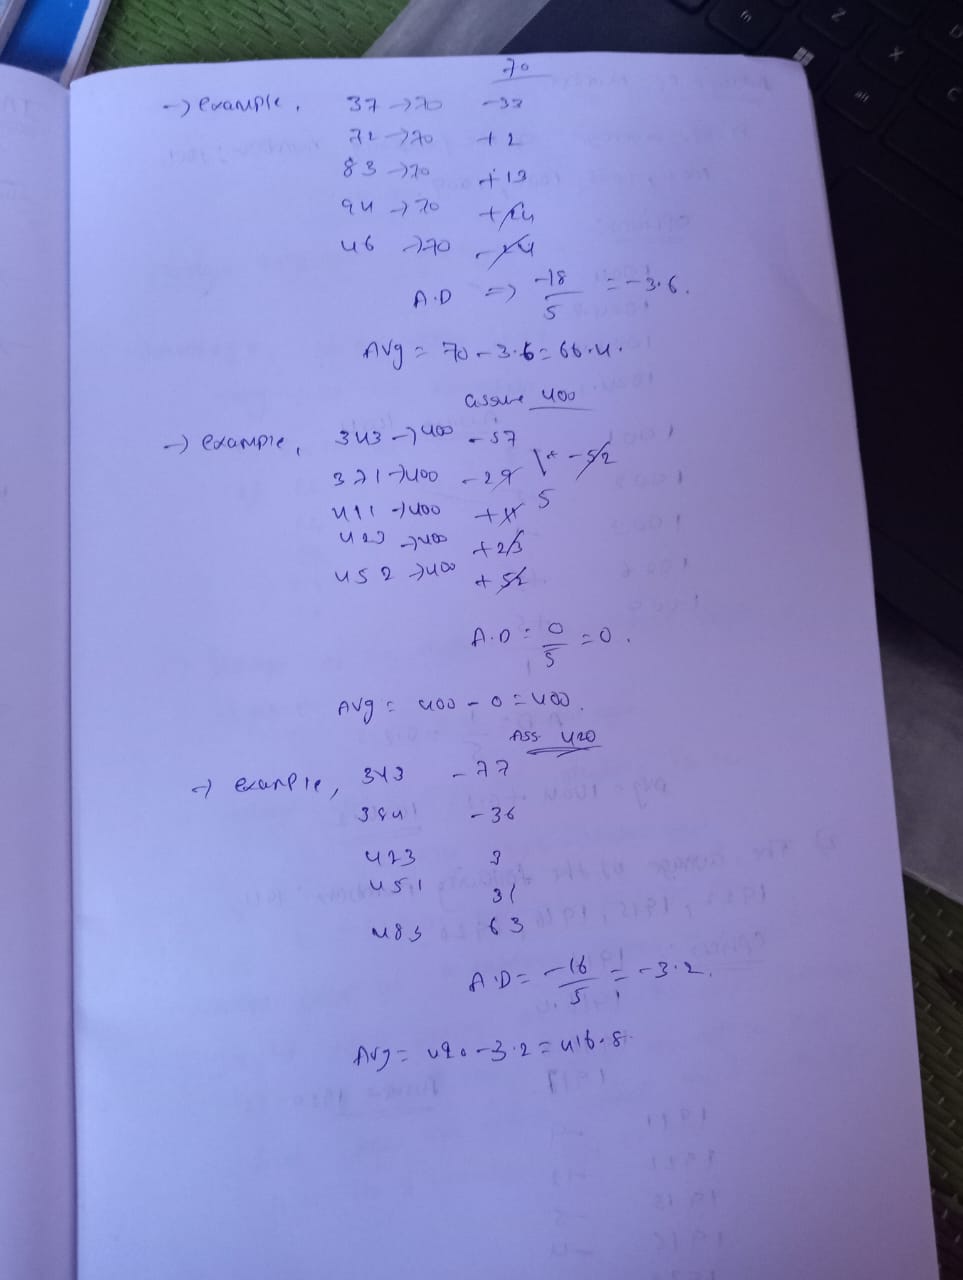 70
→ example, 37 → 70 -33
72 → 70 +2
83 → 70 +13
94 → 70 +24
46 → 70 -24
A.D ⇒ -18/5 = -3.6.
Avg = 70 - 3.6 = 66.4.
assume 400
→ example, 343 → 400 -57
371 → 400 -29 -52
411 → 400 +11 5
423 → 400 +23
452 → 400 +52
A.D = 0/5 = 0.
Avg = 400 - 0 = 400.
Ass 420
→ example, 343 -77
384 -36
423 3
451 31
483 63
A.D = -16/5 = -3.2.
Avg = 420 - 3.2 = 416.8